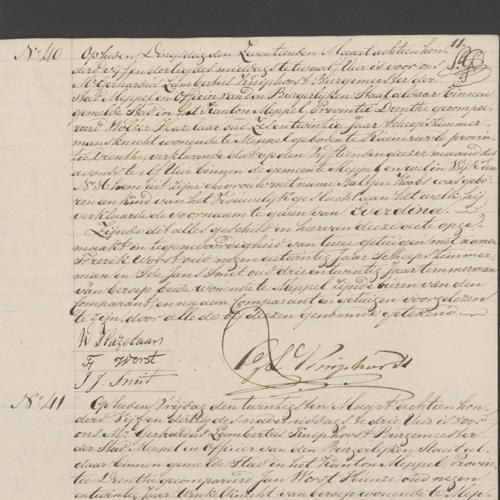 11
No 40 Op heden Dingsdag den Zeventienden Maart achtien hon
derd vijf en dertig des middags te twaalf uur is voor ons
Mr Gerhardus Lambertus Kniphorst Burgemeester der
Stad Meppel en Officier van den Burgerlijken Staat aldaar binnen
gemelde Stad in het Kanton Meppel, Provintie Drenthe gecompa
reerd Wolter Hazelaar oud Zes en twintig Jaar Scheepstimmer
mansknecht wonende te Meppel geboren te Ruinerwolde provin
tie Drenthe verklarende dat op den Vijftienden dezer maand des
avonds te elf uur binnen de gemeente Meppel en wel in Wijk den
No 36 hem uit zijne ehevrouw met name Aaltjen Koobs was gebo
ren een kind van het Vrouwelijk geslacht aan het welk hij
verklaarde de voornaam te geven van Everdina.
Zijnde dit alles geschied en hiervan deze acte opge
maakt in tegenwoordigheid van twee getuigen met name
Frerik Worst oud negen en twintig Jaar Scheepstimmer
man en Jde Jans Smit oud drie en twintig Jaar timmerman
van beroep beide wonende te Meppel zijnde
Comparant, en na aan Comparant en getuigen voorgelezen
te zijn, door alle de bij dezen genoemde getekend
W Hazelaar
Fj Worst
J J. Smit
G L Kniphorst
No 41 Op heden Vrijdag den twintigsten Maart achtien hon
derd Vijf en dertig des namiddags te drie Uur is voor
ons Mr Gerhardus Lambertus Kniphorst Burgemeester
der Stad Meppel en Officier van den Burgerlijken Staat al
daar binnen gemelde Stad in het Kanton Meppel, Provin
tie Drenthe gecompareerd Jan Worst Hinke oud negen
en twintig Jaar van beroep wonende te Mep